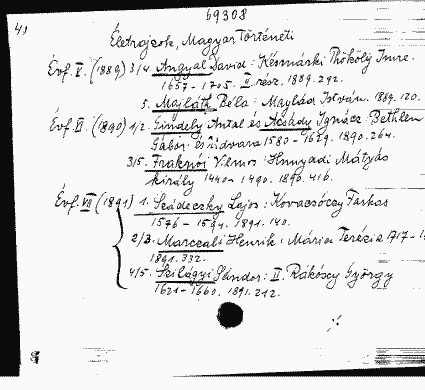 69308
41
Életrajzok, Magyar Történeti
Évf. V. (1889) 3/4. Angyal Dávid: Késmárki Thököly Imre.
1657-1705. II. rész, 1889. 292.
5. Majláth Béla: Maylád István. 1889. 120.
Évf. VI (1890) 1/2. Gindely Antal és Acsády Ignácz. Bethlen
Gábor és udvara 1580-1629. 1890. 264.
3/5. Fraknói Vilmos: Hunyadi Mátyás
király 1440-1490. 1890. 416.
Évf. VII (1891) 1. Szádeczky Lajos: Kovacsóczy Farkas
1576-1594. 1891. 140.
2/3. Marczali Henrik: Mária Terézia 1717-1
1891. 332.
4/5. Szilágyi Sándor: II. Rákóczy György
1621-1660. 1891. 212.